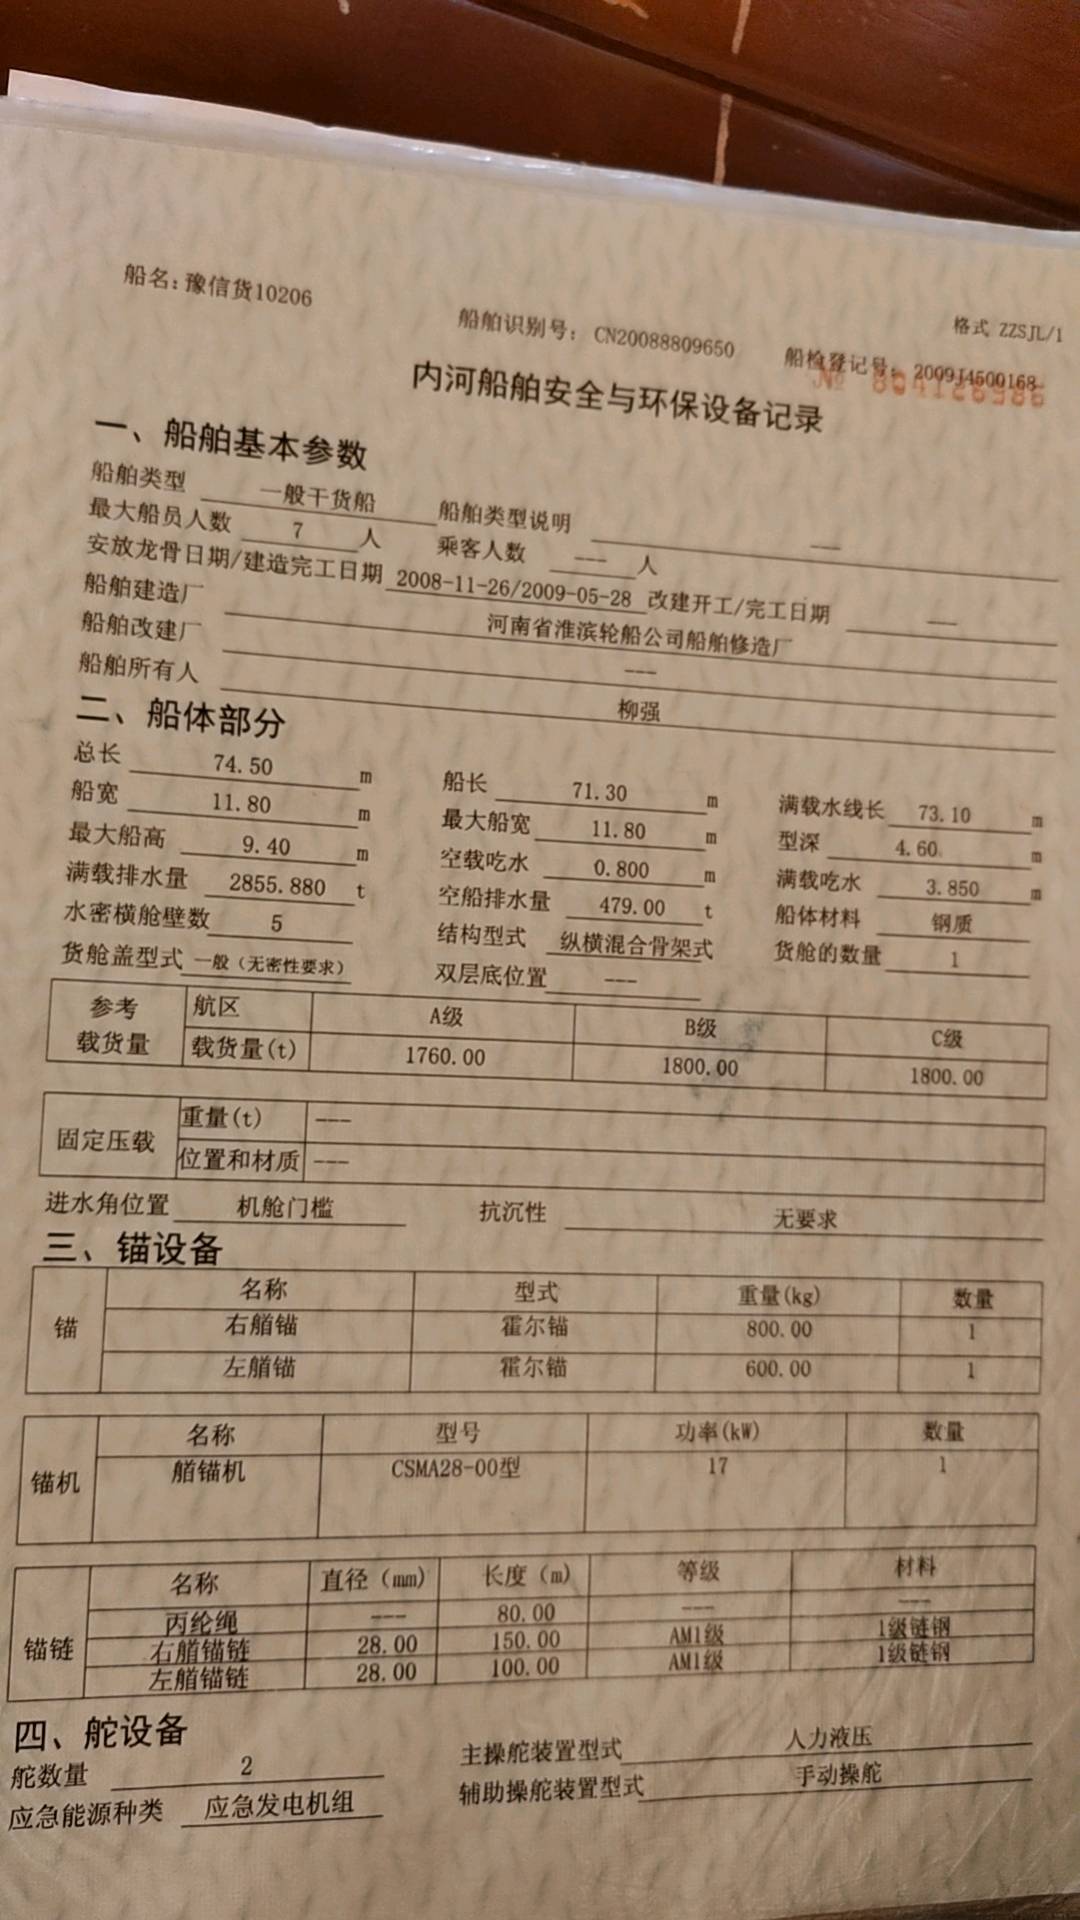 船名:豫信货10206
格式 ZZSJL/1
船舶识别号: CN20088809650 船检登记号: 2009J4500168
内河船舶安全与环保设备记录
一、船舶基本参数
船舶类型 一般干货船 船舶类型说明 ---
最大船员人数 7 人 乘客人数 --- 人
安放龙骨日期/建造完工日期 2008-11-26/2009-05-28 改建开工/完工日期 ---
船舶建造厂 河南省淮滨轮船公司船舶修造厂
船舶改建厂 ---
船舶所有人 柳强
二、船体部分
总长 74.50 m 船长 71.30 m 满载水线长 73.10 m
船宽 11.80 m 最大船宽 11.80 m 型深 4.60 m
最大船高 9.40 m 空载吃水 0.800 m 满载吃水 3.850 m
满载排水量 2855.880 t 空船排水量 479.00 t 船体材料 钢质
水密横舱壁数 5 结构型式 纵横混合骨架式 货舱的数量 1
货舱盖型式 一般(无密性要求) 双层底位置 ---
参考载货量 航区 A级 B级 C级
载货量(t) 1760.00 1800.00 1800.00
固定压载 重量(t) ---
位置和材质 ---
进水角位置 机舱门槛 抗沉性 无要求
三、锚设备
锚 名称 型式 重量(kg) 数量
右艏锚 霍尔锚 800.00 1
左艏锚 霍尔锚 600.00 1
锚机 名称 型号 功率(kW) 数量
艏锚机 CSMA28-00型 17 1
锚链 名称 直径(mm) 长度(m) 等级 材料
丙纶绳 --- 80.00 --- ---
右艏锚链 28.00 150.00 AM1级 1级链钢
左艏锚链 28.00 100.00 AM1级 1级链钢
四、舵设备
舵数量 2 主操舵装置型式 人力液压
应急能源种类 应急发电机组 辅助操舵装置型式 手动操舵